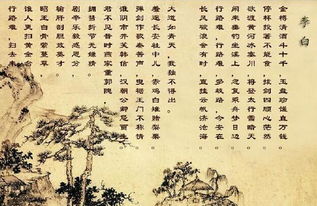 李白
金樽清酒斗十千，玉盘珍羞值万钱。
停杯投箸不能食，拔剑四顾心茫然。
欲渡黄河冰塞川，将登太行雪暗天。
闲来垂钓坐溪上，忽复乘舟梦日边。
行路难，行路难，多歧路，今安在。
长风破浪会有时，直挂云帆济沧海。
大道如青天，我独不得出。
羞逐长安社中儿，赤鸡白雉赌梨栗。
弹剑作歌奏苦声，曳裾王门不称情。
淮阴市井笑韩信，汉朝公卿忌贾生。
君不见昔时燕家重郭隗，
拥篲折节无嫌猜。
剧辛乐毅感恩分，
输肝剖胆效英才。
昭王白骨萦蔓草，
谁人更扫黄金台。
行路难，归去来。